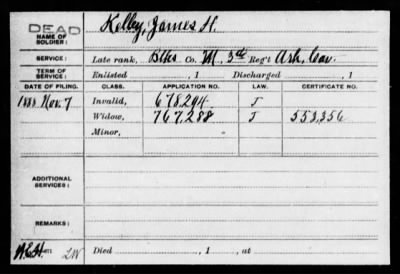 DEAD
NAME OF SOLDIER: Kelley, James H.
SERVICE: Late rank, Blks Co. M, 3d Reg't Ark, Cav.
TERM OF SERVICE: Enlisted , 1 Discharged , 1
DATE OF FILING. CLASS. APPLICATION NO. LAW. CERTIFICATE NO.
1888 Nov. 7 Invalid, 678294 J
Widow, 767,288 J 553,356
Minor,
ADDITIONAL SERVICES:
REMARKS:
2W Died , 1 , at